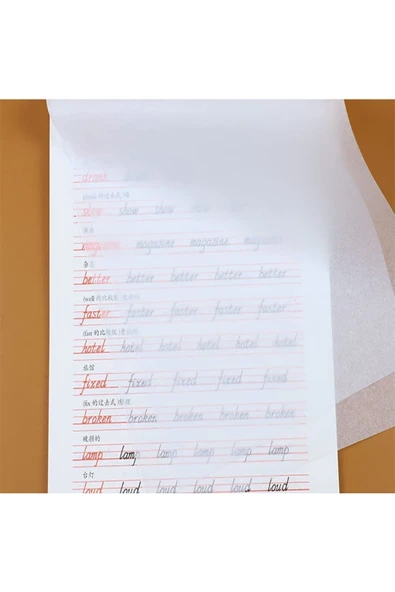 drank
show show show
magazine magazine magazine magazine
杂
better better better better better
faster faster faster faster faster
的比
hotel hotel hotel hotel hotel hotel
旅馆
fixed fixed fixed fixed fixed
(fix 的过去式)修理
broken broken broken broken broken
破损的
lamp lamp lamp lamp lamp lamp
台灯
loud loud loud loud loud loud